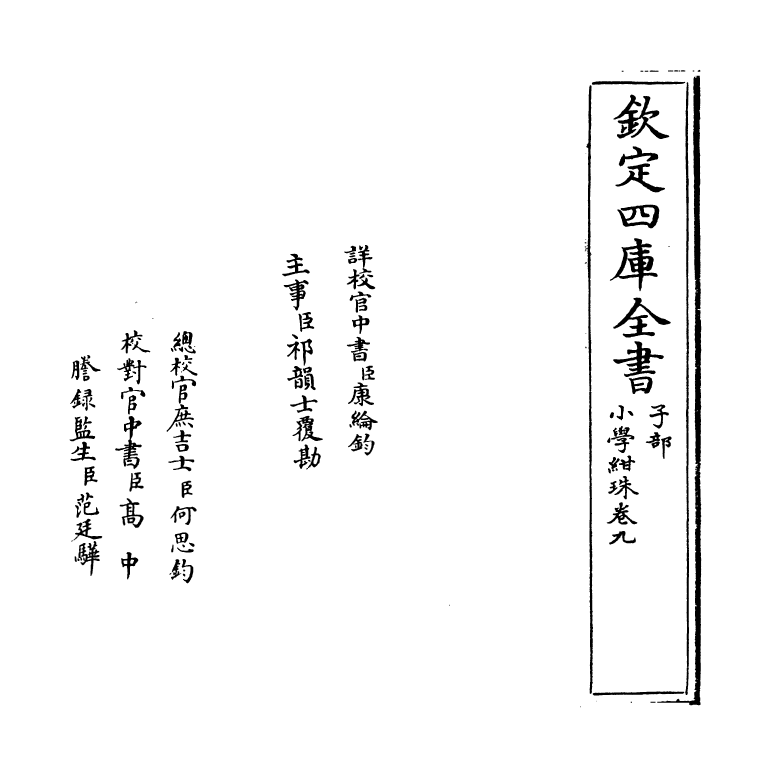 欽定四庫全書
子部
小學紺珠卷九
詳校官中書臣康綸鈞
主事臣祁韻士覆勘
總校官庶吉士臣何思鈞
校對官中書臣高中
謄録監生臣范廷驊